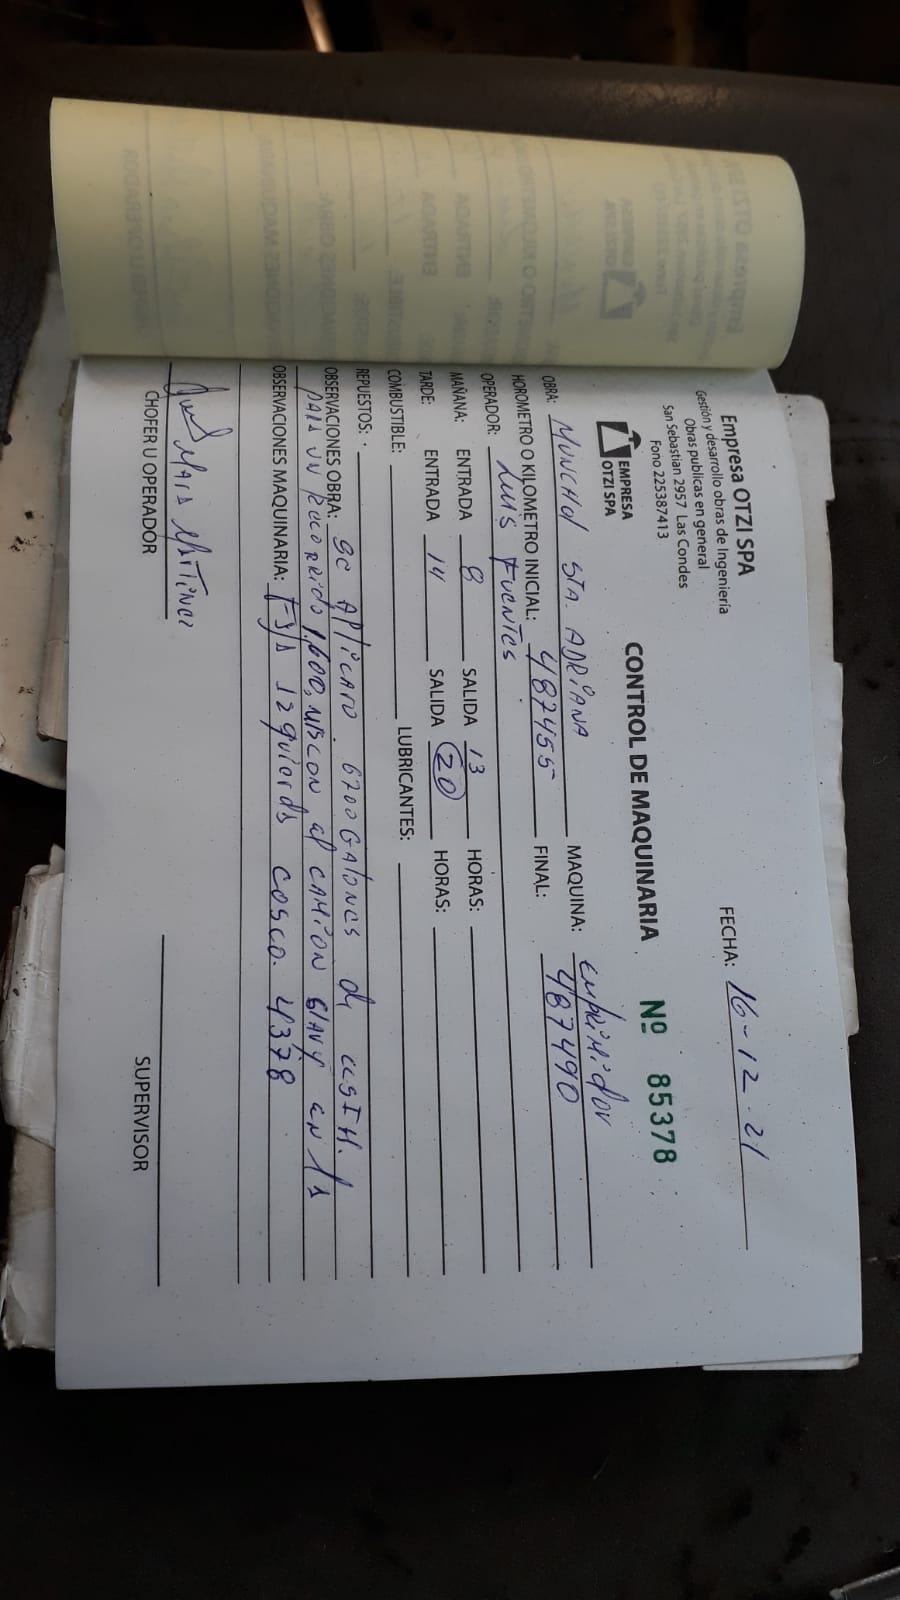 Empresa OTZI SPA
Gestión y desarrollo obras de Ingeniería
Obras publicas en general
San Sebastian 2957 Las Condes
Fono 225387413
EMPRESA
OTZI SPA
FECHA: 16-12-21
CONTROL DE MAQUINARIA Nº 85378
OBRA: STA. ADRIANA MAQUINA: EMPRIMIdOr
HOROMETRO O KILOMETRO INICIAL: 487455 FINAL: 487490
OPERADOR: Luis Fuentes
MAÑANA: ENTRADA 8 SALIDA 13 HORAS:
TARDE: ENTRADA 14 SALIDA 20 HORAS:
COMBUSTIBLE: LUBRICANTES:
REPUESTOS:
OBSERVACIONES OBRA: Se Aplicaro 6700 GAlones de
PARA UN Recorrido 1.600, al CAMION en la
OBSERVACIONES MAQUINARIA: FAJA Izquierda 4378
CHOFER U OPERADOR
SUPERVISOR